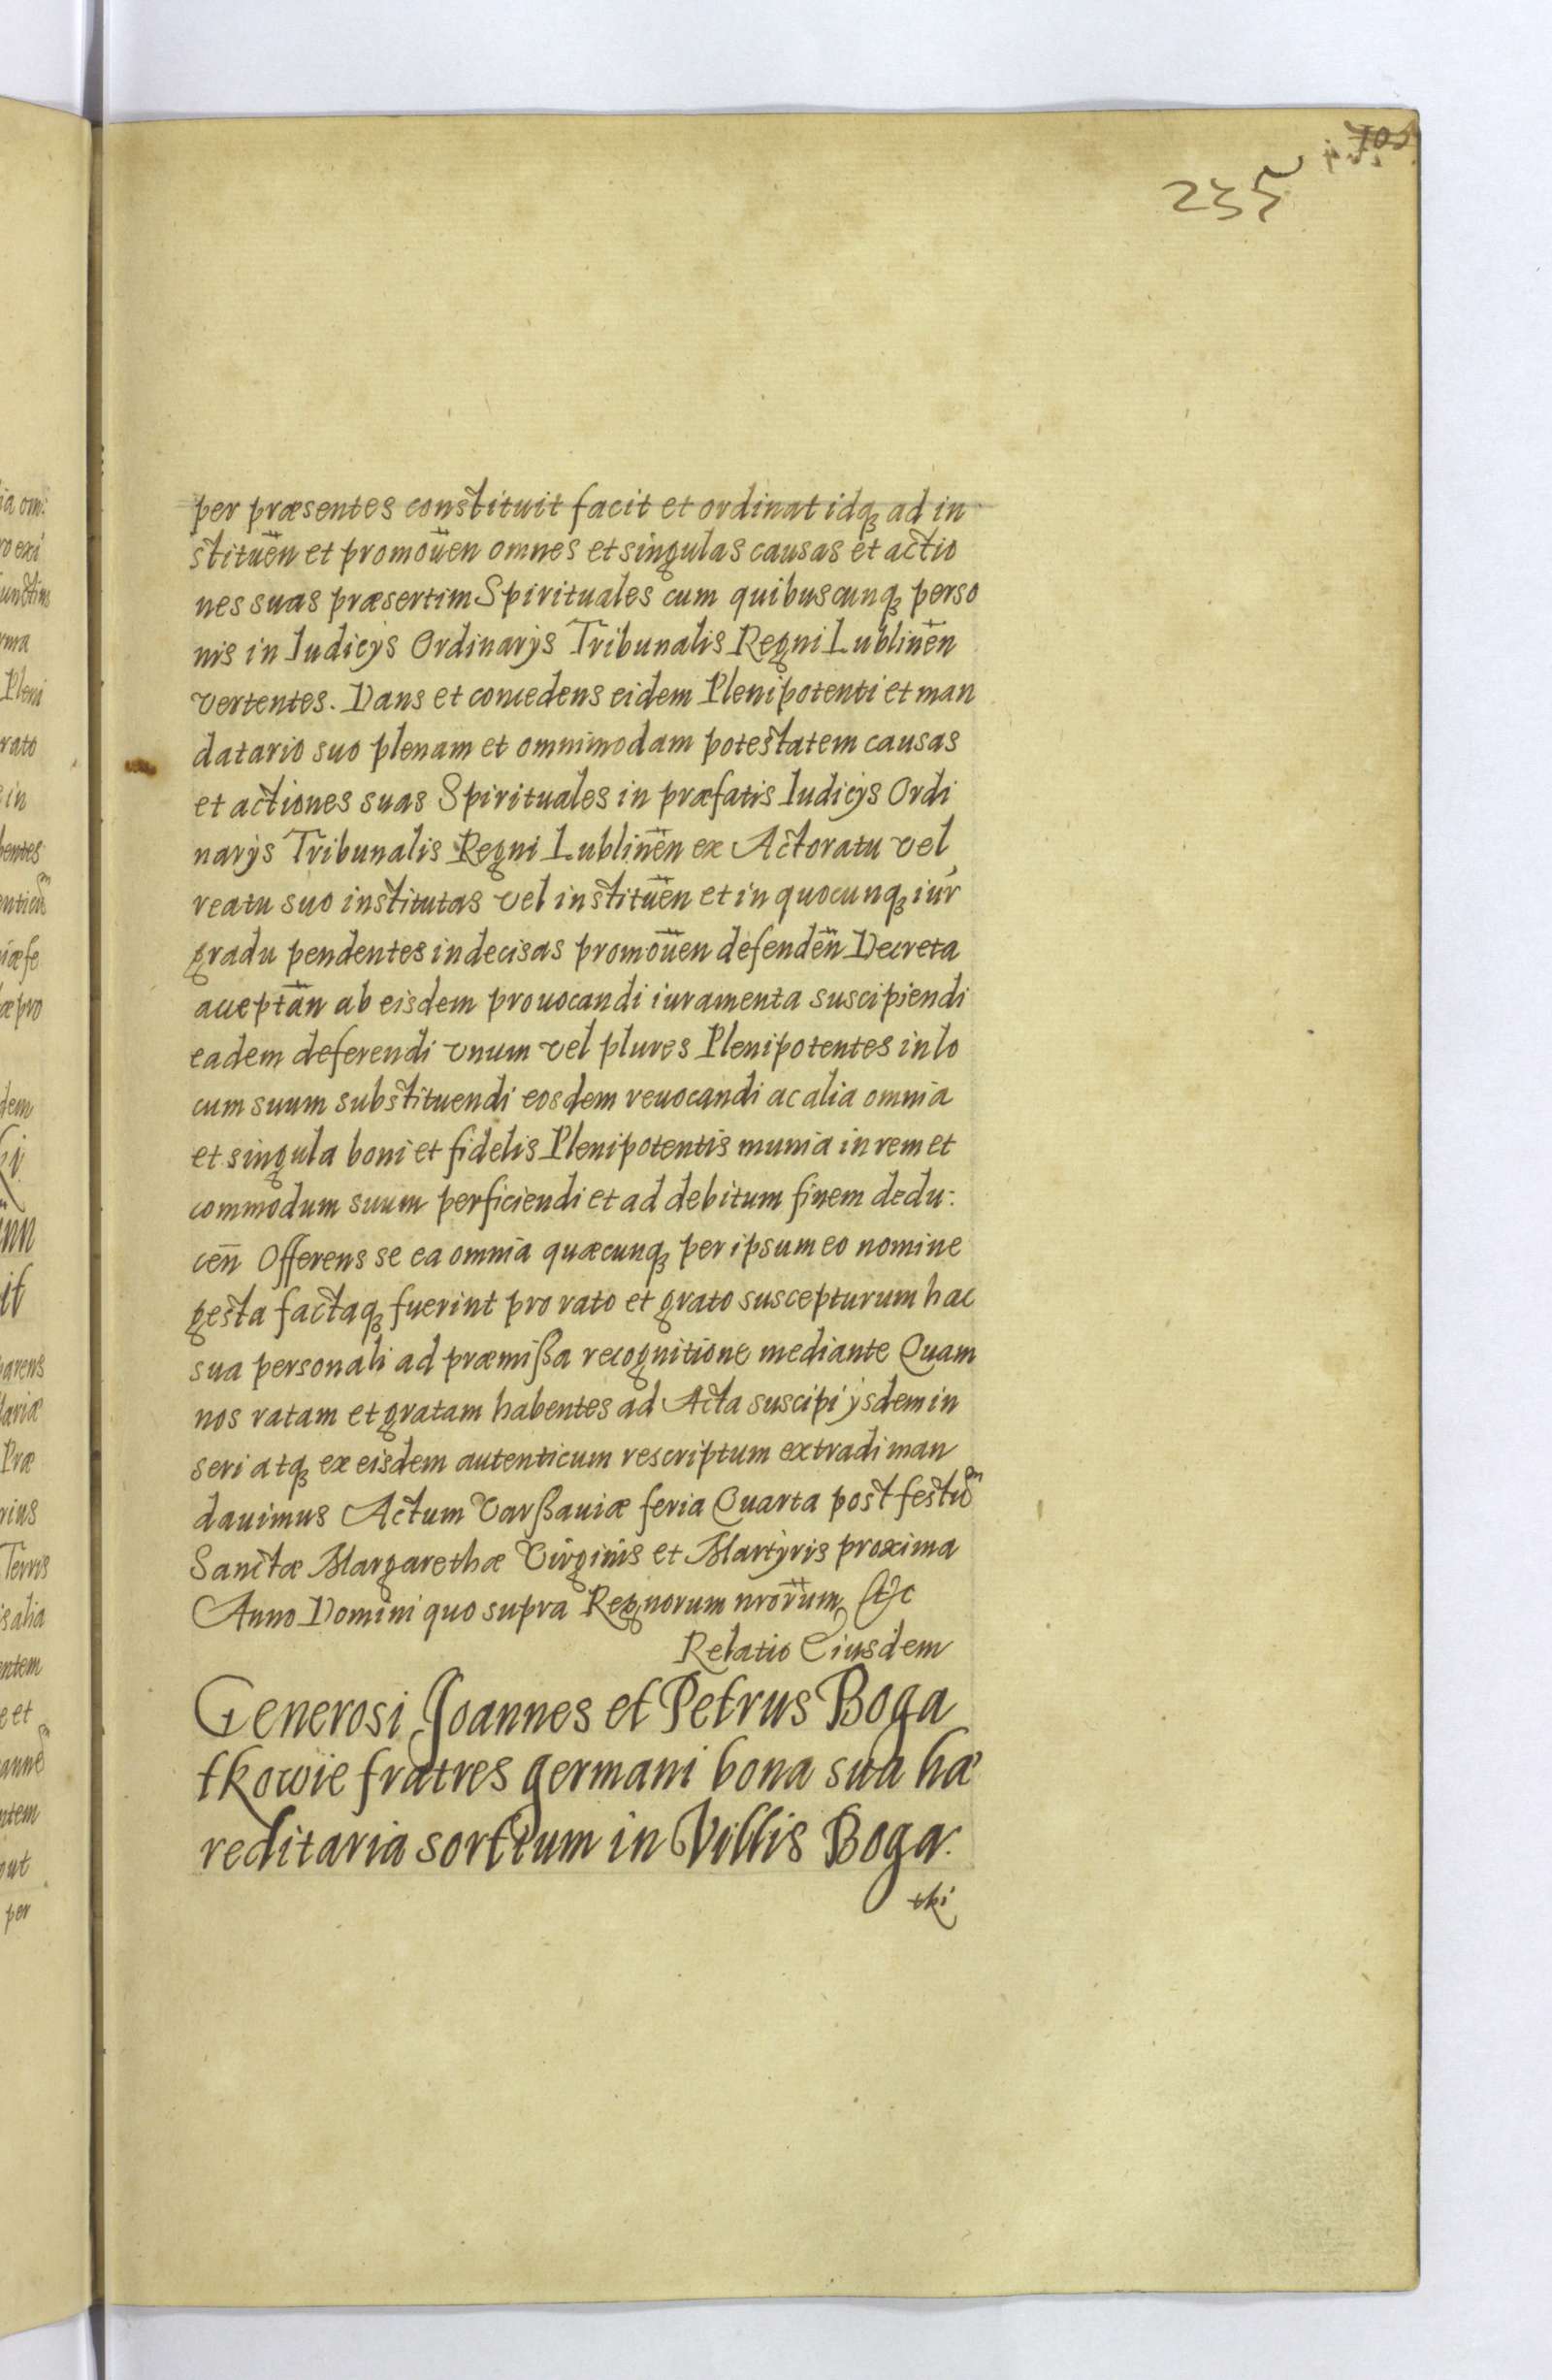 235
per præsentes constituit facit et ordinat idq₃ ad in
stitueñ et promoueñ omnes et singulas causas et actio
nes suas præsertim Spirituales cum quibuscunq₃ perso
nis in Iudicÿs Ordinarÿs Tribunalis Regni Lublineñ
vertentes. Dans et concedens eidem Plenipotenti et man
datario suo plenam et omnimodam potestatem causas
et actiones suas Spirituales in præfatis Iudicÿs Ordi
narÿs Tribunalis Regni Lublineñ ex Actoratu vel
reatu suo institutas vel institueñ et in quocunq₃ iur
gradu pendentes indecisas promoueñ defendeñ Decreta
acceptañ ab eisdem prouocandi iuramenta suscipiendi
eadem deferendi vnum vel plures Plenipotentes in lo
cum suum substituendi eosdem reuocandi ac alia omnia
et singula boni et fidelis Plenipotentis munia in rem et
commodum suum perficiendi et ad debitum finem dedu:
ceñ Offerens se ea omnia quæcunq₃ per ipsum eo nomine
gesta factaq₃ fuerint pro rato et grato suscepturum hac
sua personali ad præmißa recognitione mediante Quam
nos ratam et gratam habentes ad Acta suscipi ÿsdem in
seri atq₃ ex eisdem autenticum rescriptum extradi man
dauimus Actum Varßauiæ feria Quarta post festū
Sanctæ Margarethæ Virginis et Martÿris proxima
Anno Domini quo supra Regnorum nror̄um &c
Relatio Eiusdem
Generosi Joannes et Petrus Boga
tkowie fratres germani bona sua hæ
reditaria sortium in Villis Boga:
tki